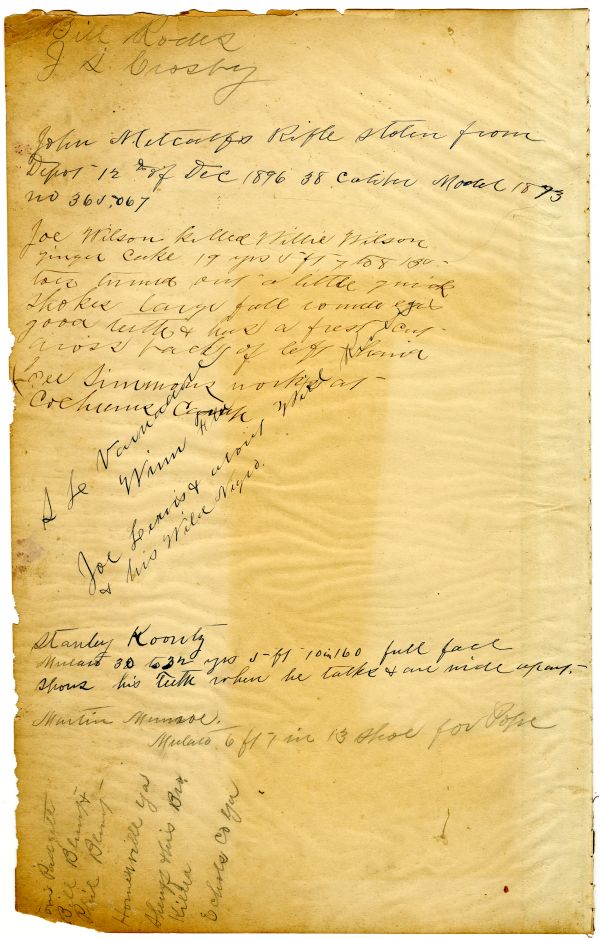 Bill Rodes
J S Crosby
John Metcalfs Rifle stolen from
Depot 12th of Dec 1896 38 Caliber Model 1873
no 365,067
Joe Wilson killed Willie Wilson
ginger Cake 19 yrs 5 ft 7 to 8 130
toes turned out a little quick
spoken large full round eyes
good teeth & has a fresh cut
cross back of left hand
Lee Simmons works at
Cochrans Camp
S L Varnadore
Winn
Joe Lewis & about Wild
& his Wild Negro.
Stanley Koontz
Mulato 30 to 32 yrs 5 ft 10 in 160 full face
shows his teeth when he talks & are wide apart.
Martin Munroe.
Mulato 6 ft 1 in 13 shoe for Pope
Bill
Homerville Ga
this Bro
Killed
Echols Co Ga